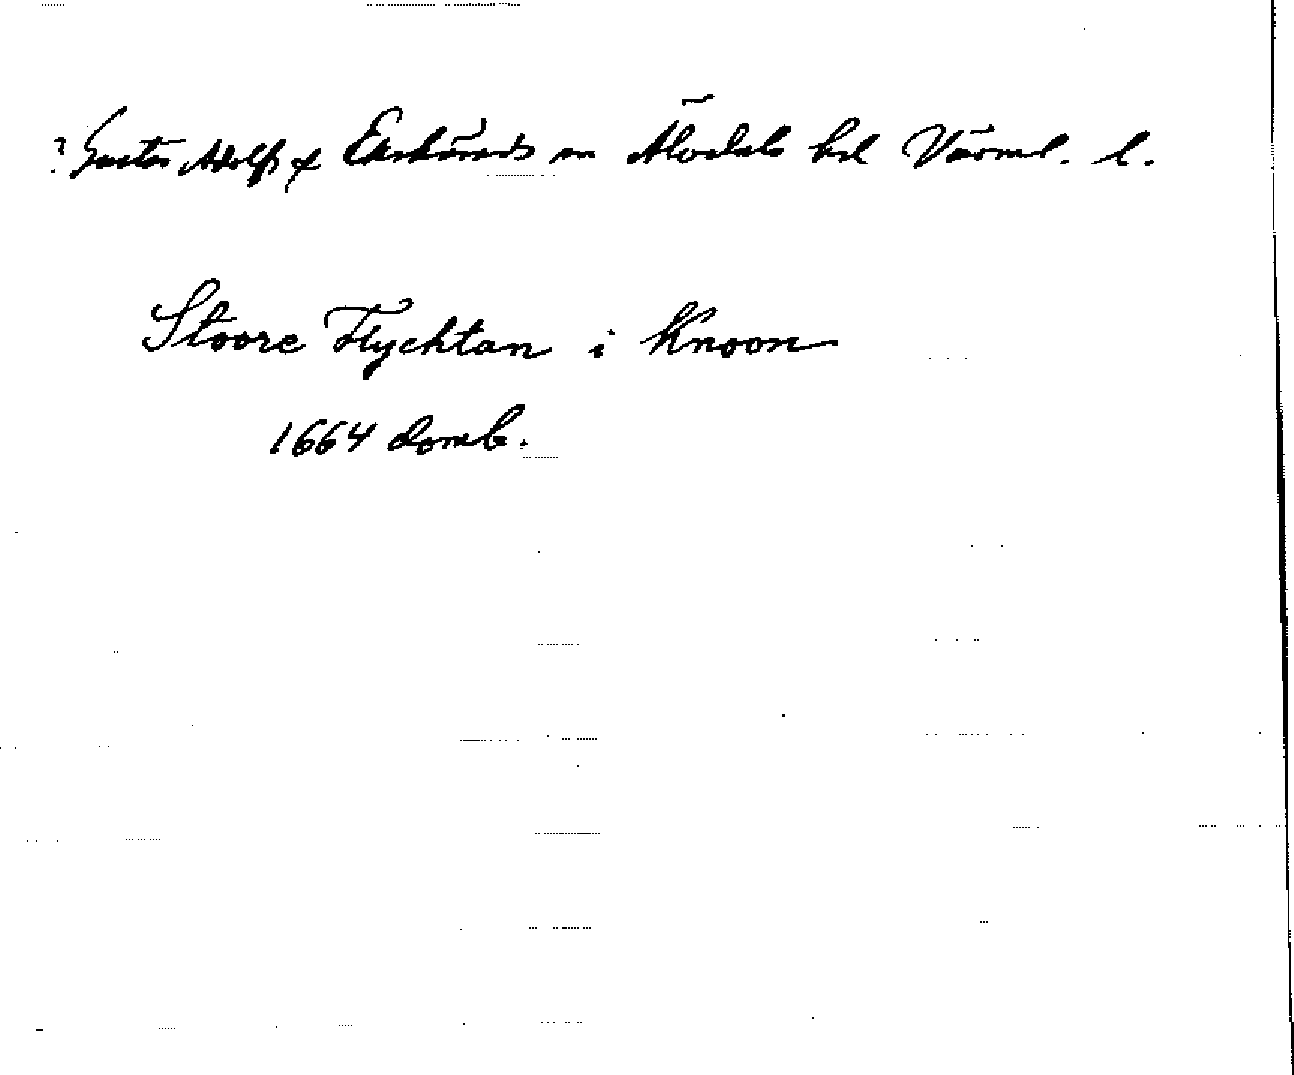 ? Gustav Adolfs f Ekshärads sn Älvdals hd Värml. l.
Stoore Flychtan i Knoon
1664 domb.